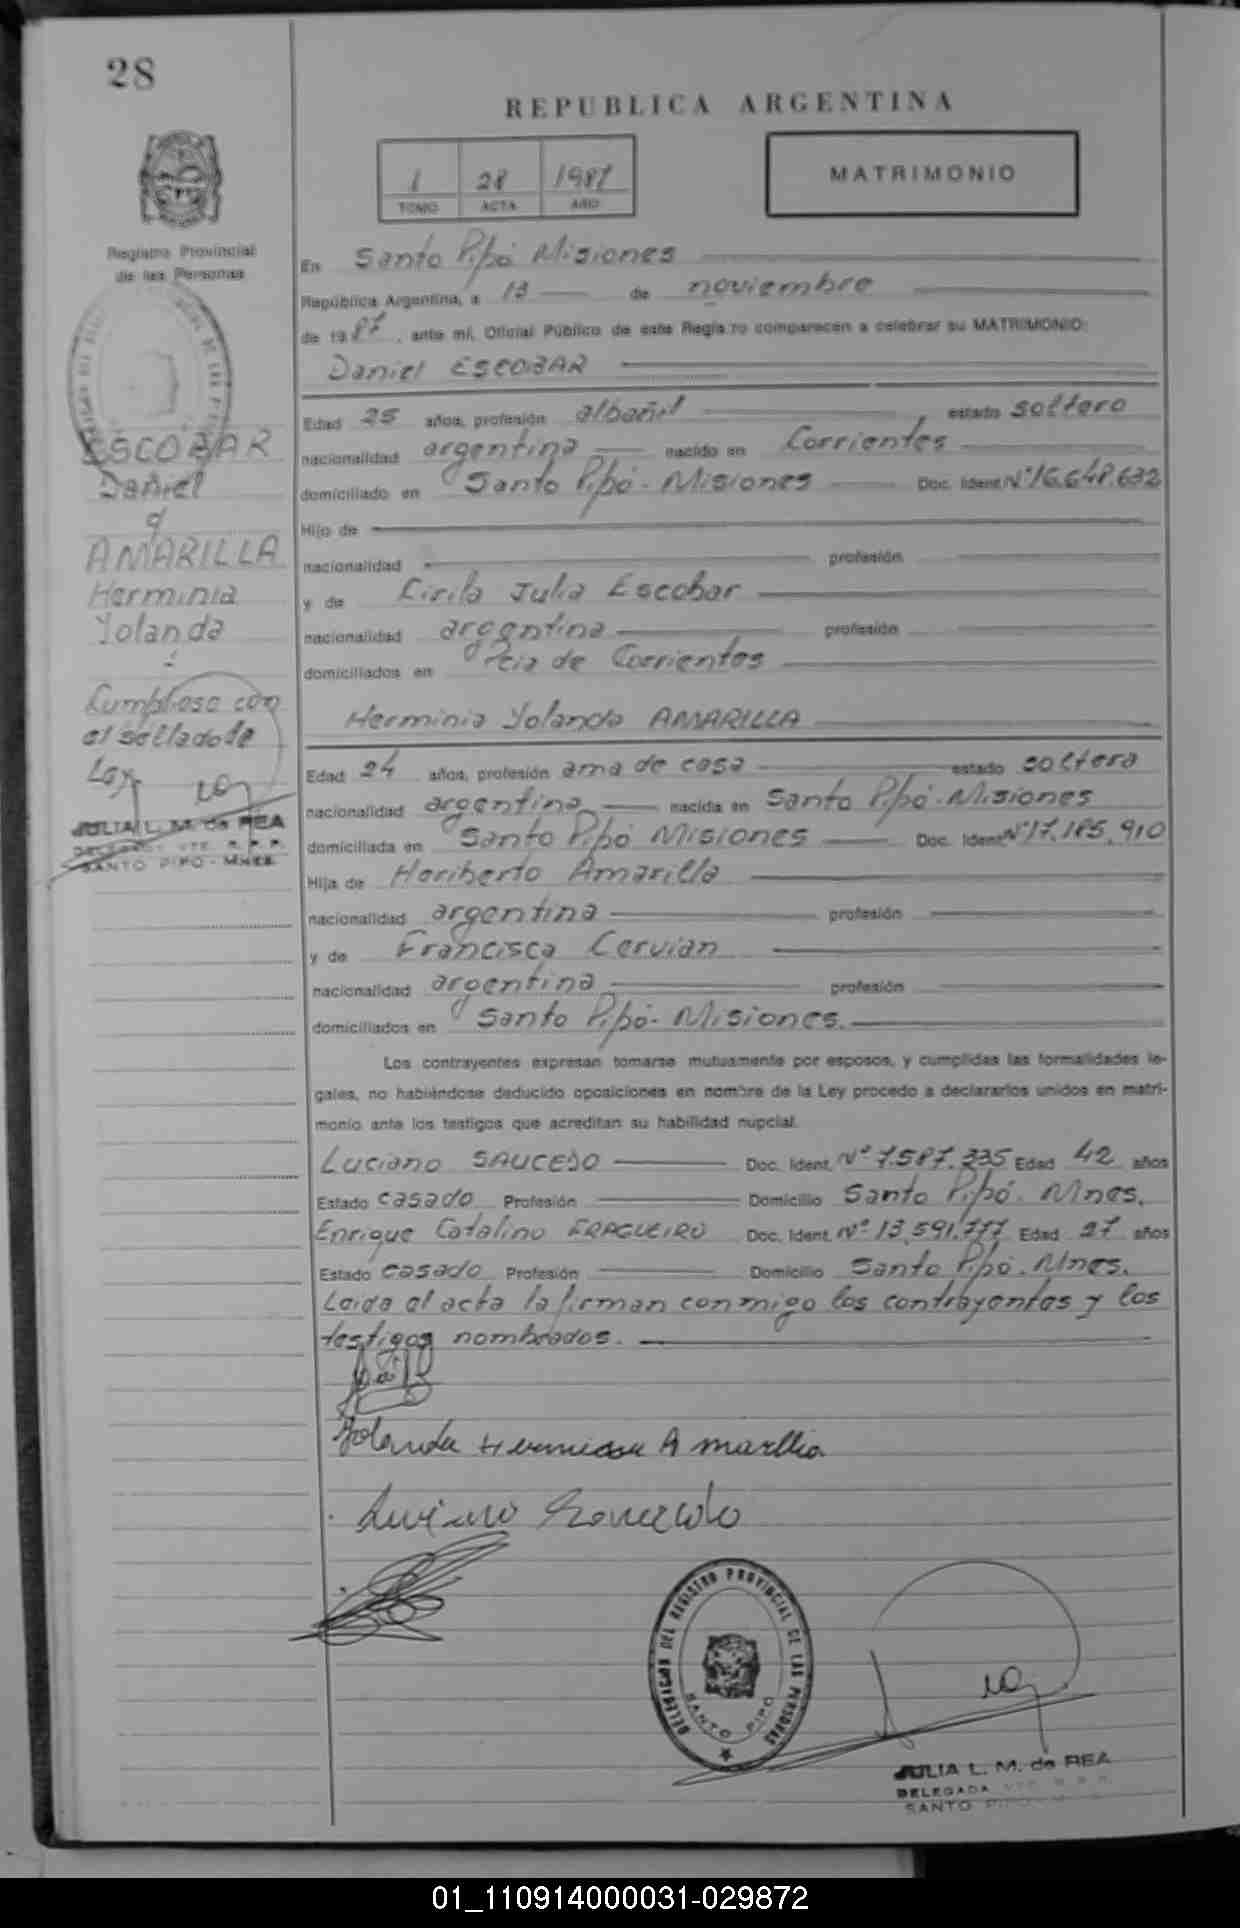 28
REPUBLICA ARGENTINA
1 28 1987
TOMO ACTA AÑO
MATRIMONIO
Registro Provincial
de las Personas
En Santo Pipó Misiones
República Argentina, a 13 de noviembre
de 1987, ante mí, Oficial Público de este Registro comparecen a celebrar su MATRIMONIO:
Daniel ESCOBAR
Edad 25 años, profesión albañil, estado soltero
nacionalidad argentina nacido en Corrientes
domiciliado en Santo Pipó - Misiones Doc. Ident. Nº 16.648.632
Hijo de
nacionalidad profesión
y de Cirila Julia Escobar
nacionalidad argentina profesión
domiciliados en Pcia de Corrientes
Herminia Yolanda AMARILLA
Edad 24 años, profesión ama de casa estado soltera
nacionalidad argentina nacida en Santo Pipó - Misiones
domiciliada en Santo Pipó Misiones Doc. Ident. Nº 17.185.910
Hija de Heriberto Amarilla
nacionalidad argentina profesión
y de Francisca Cervian
nacionalidad argentina profesión
domiciliados en Santo Pipó - Misiones.
Los contrayentes expresan tomarse mutuamente por esposos, y cumplidas las formalidades le-
gales, no habiéndose deducido oposiciones en nombre de la Ley procedo a declararlos unidos en matri-
monio ante los testigos que acreditan su habilidad nupcial.
Luciano SAUCEDO Doc. Ident. Nº 7.587.335 Edad 42 años
Estado casado Profesión Domicilio Santo Pipó. Mnes.
Enrique Catalino FRAGUEIRO Doc. Ident. Nº 13.591.777 Edad 27 años
Estado casado Profesión Domicilio Santo Pipó. Mnes.
Leida el acta la firman conmigo los contrayentes y los
testigos nombrados.
ESCOBAR
Daniel
y
AMARILLA
Herminia
Yolanda
Cumpliose con
el sellado de
Ley.
JULIA L. M. de REA
DELEGADA VTE. R.P.P.
SANTO PIPO - MNES
Yolanda Herminia Amarilla
Luciano Saucedo
DELEGACION DEL REGISTRO PROVINCIAL DE LAS PERSONAS
SANTO PIPO
JULIA L. M. de REA
DELEGADA VTE. R.P.P.
SANTO
01_110914000031-029872